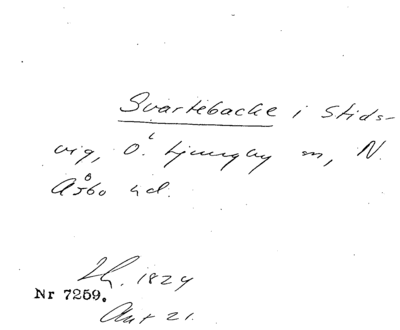 Svartebacke i Stids-
vig, Ö. Ljungby sn, N.
Åsbo hd.
1824
Nr 7259.
21.